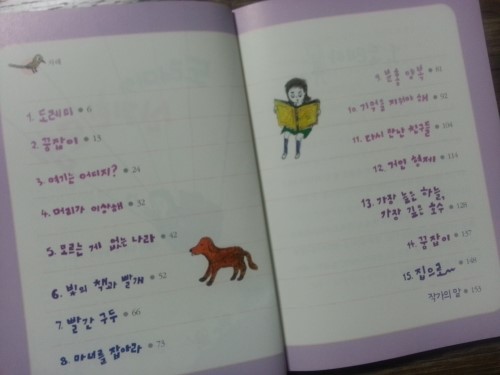 차례
1. 도레미 • 6
2. 꿈잡이 • 13
3. 여기는 어디지? • 24
4. 머리가 이상해 • 32
5. 모르는 게 없는 나라 • 42
6. 빛의 책과 빨개 • 52
7. 빨간 구두 • 66
8. 마녀를 잡아라 • 73
• 81
10. 기억을 지워야 해 • 92
11. 다시 만난 친구들 • 104
12. 거인 형제 • 114
13. 가장 높은 하늘,
가장 깊은 호수 • 128
14. 꿈잡이 • 137
15. 집으로 • 148
작가의 말 • 155